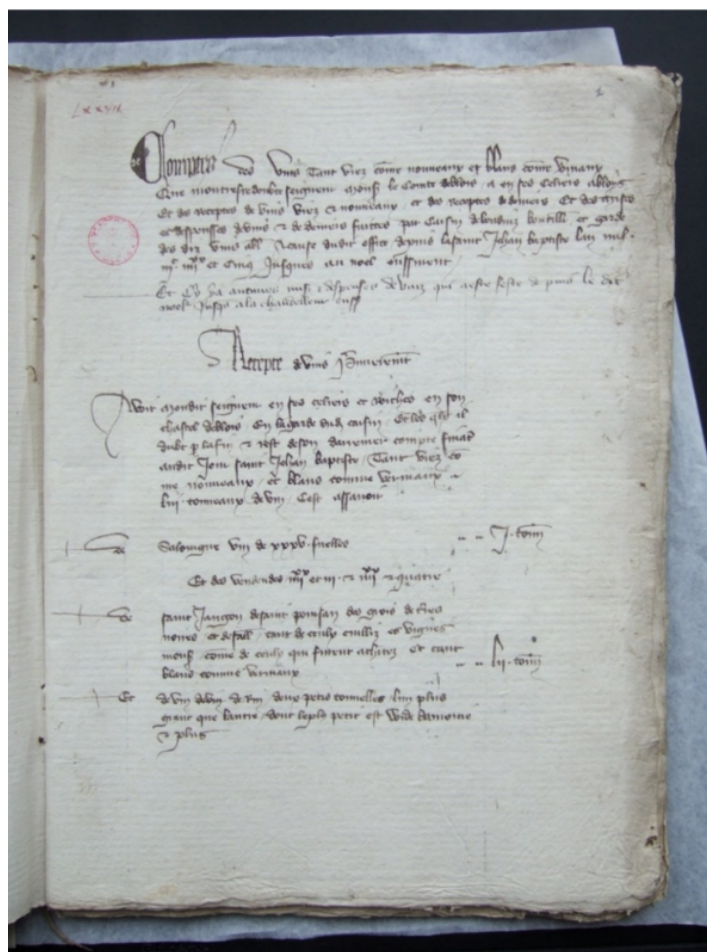 LXXVII
1
Compte des vins tant viez come nouveaux et blans come vmaux
Que mon tresredoubte seigneur mons le Conte de blois a en ses celiers a blois
Et des receptes de vins viez et nouveaux et des receptes de deniers Et des mises
et despenses de vins et de deniers faictes par Casin bouteill et garde
des diz vins a cause dudit office depuis la saint Jehan baptiste lan mil
iijc iiijxx et Cinq Jusques au noel enssuivant
Et Cy ha aucunes mises et despenses de vins qui a este faite depuis le dit
noel Jusqs a la chandeleur enss
Recepte de vins
Avoit mondit seigneur en ses celiers et en son
chastel de blois En la garde dud casin Et les qlx il
doubt p la fin et rest de son darrenier compte finat
audit Jour saint Jehan baptiste Tant viez co
me nouveaux et blans comme vermaux
liii tonneaux de vin Cest assavoir
De Saloingne vin de xxxv fuelles j tonn
Et des vendenges iiijxx et iij et iiijxx et quatre
De saint Jangon de saint
tant de ceulx cuilliz es vignes
mons come de ceulx qui furent achatez Et tant
blans comme vermaux lij tonn
Et de vin deux petis tonnelles lun plus
grant que lautre dont le plus petit est wide la moitie
et plus